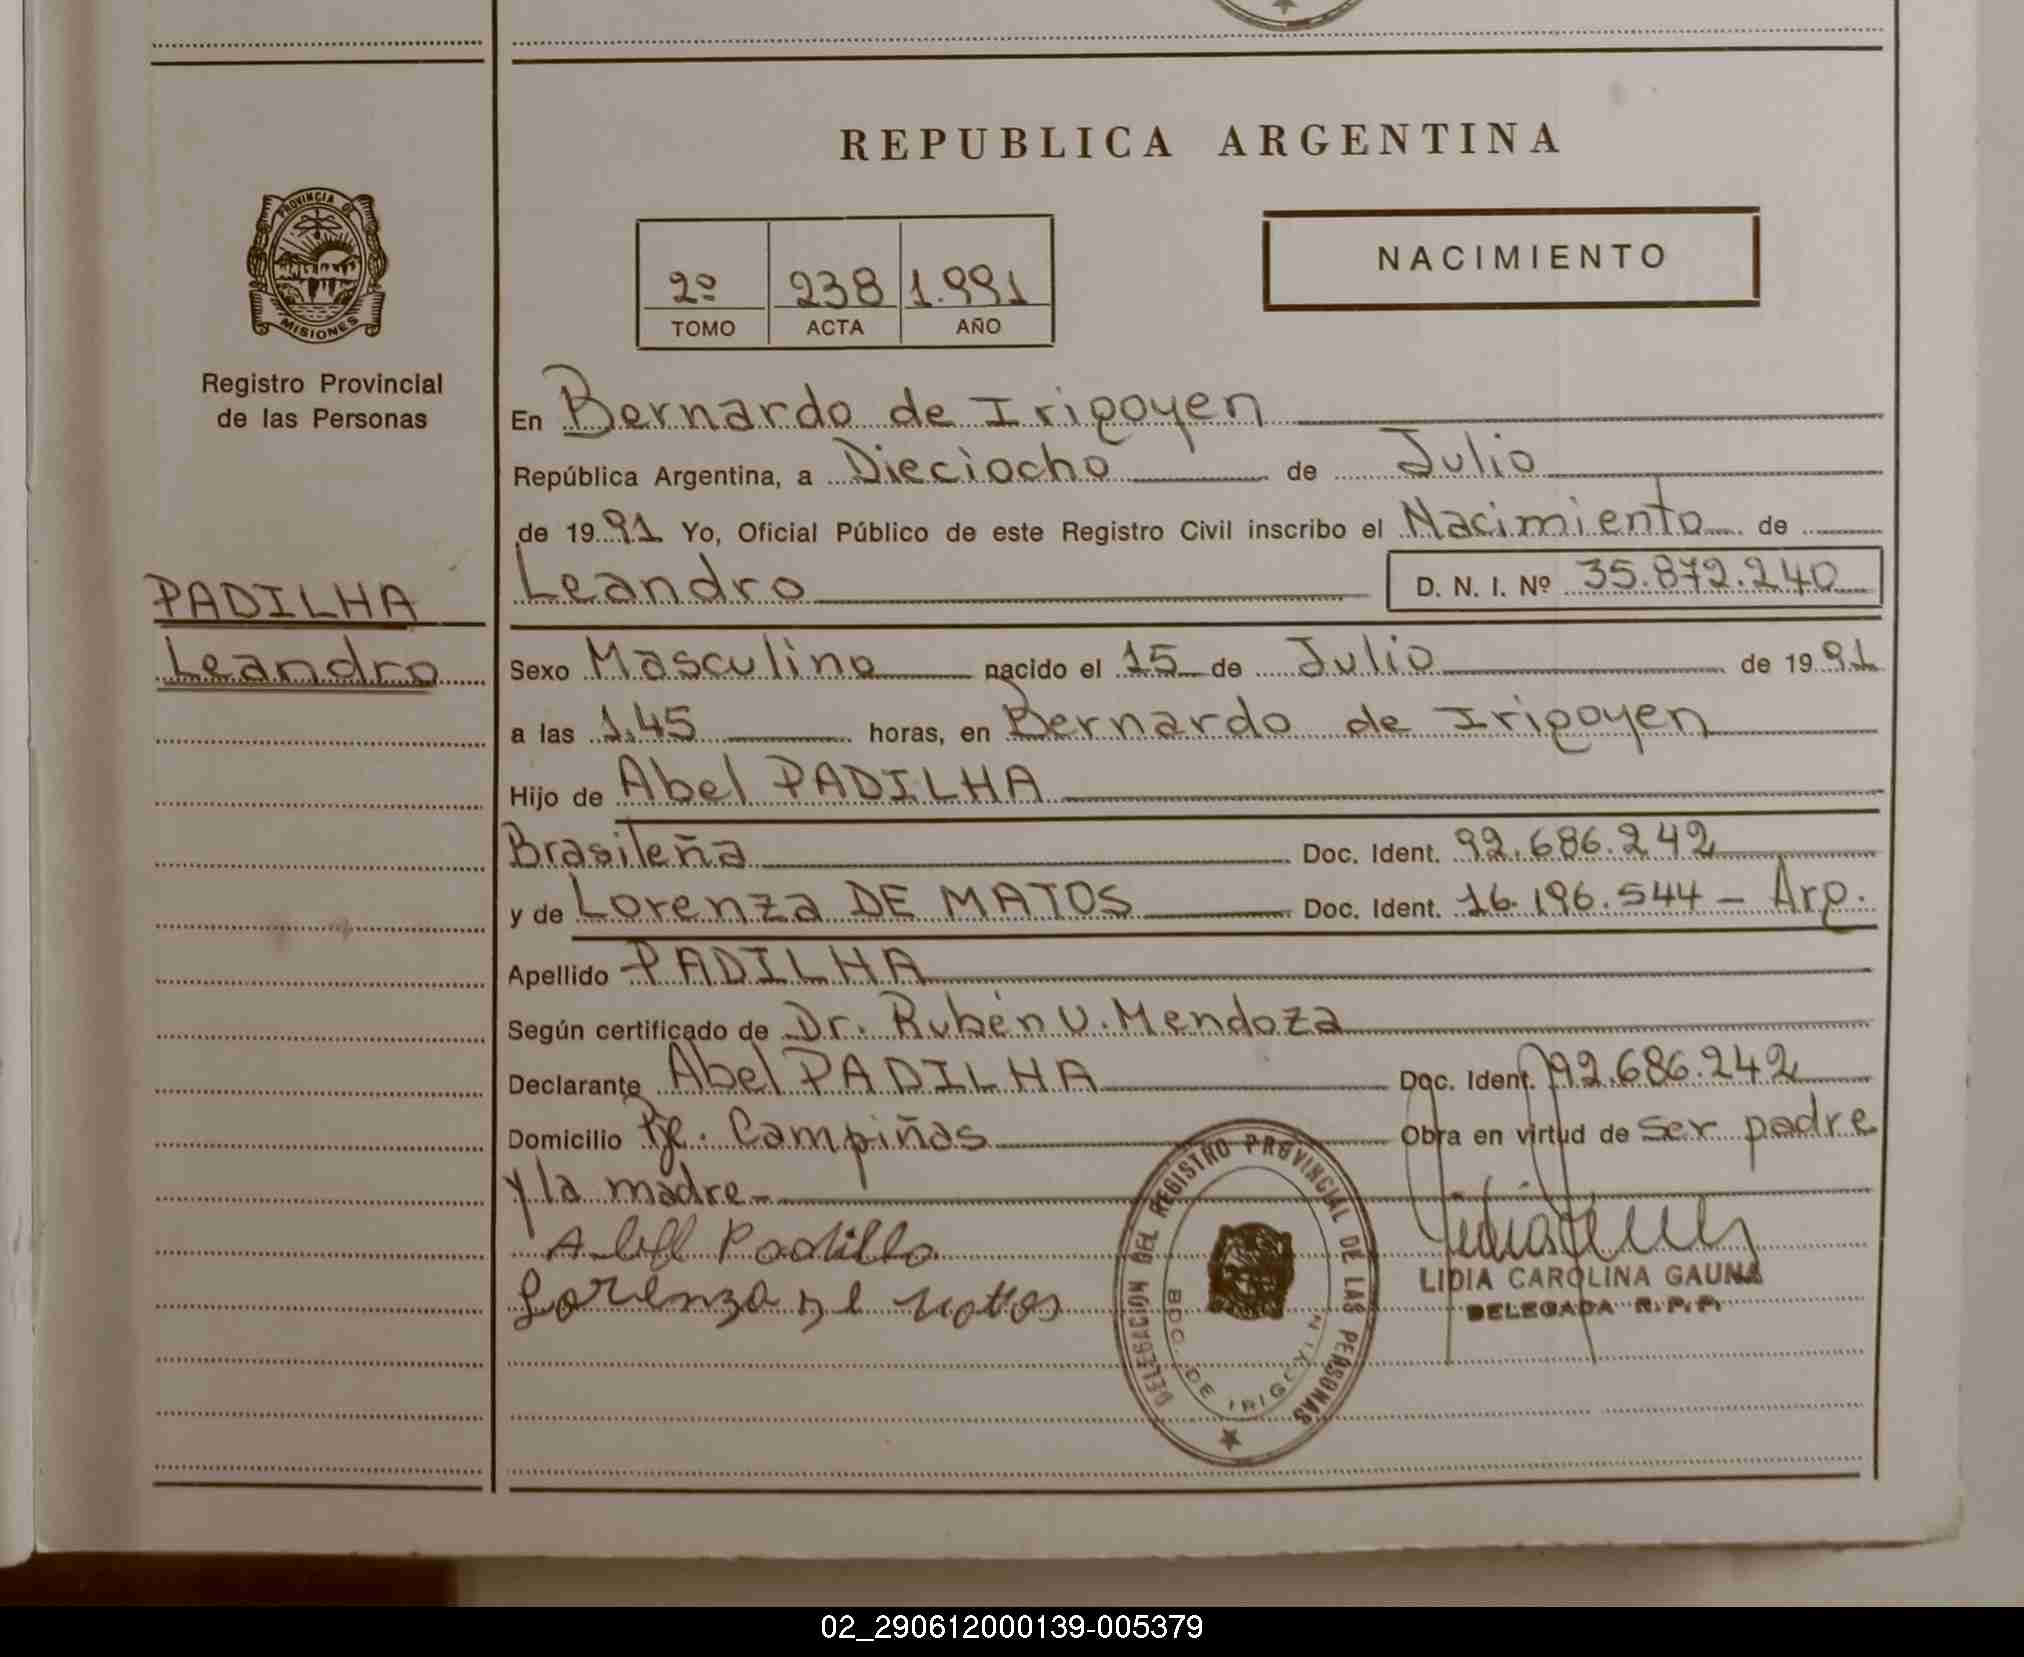 REPUBLICA ARGENTINA
PROVINCIA DE
MISIONES
Registro Provincial
de las Personas
NACIMIENTO
2º 238 1.991
TOMO ACTA AÑO
En Bernardo de Irigoyen
República Argentina, a Dieciocho de Julio
de 1991 Yo, Oficial Público de este Registro Civil inscribo el Nacimiento de
Leandro D. N. I. Nº 35.872.240
PADILHA
Leandro
Sexo Masculino nacido el 15 de Julio de 1991
a las 1.45 horas, en Bernardo de Irigoyen
Hijo de Abel PADILHA
Brasileña Doc. Ident. 92.686.242
y de Lorenza DE MATOS Doc. Ident. 16.196.544 - Arg.
Apellido PADILHA
Según certificado de Dr. Rubén U. Mendoza
Declarante Abel PADILHA Doc. Ident. 92.686.242
Domicilio Pje. Campiñas Obra en virtud de ser padre
y la madre
Abel Padilla
Lorenza de Matos
DELEGACION DEL REGISTRO PROVINCIAL DE LAS PERSONAS
BDO. DE IRIGOYEN
LIDIA CAROLINA GAUNA
DELEGADA R.P.P.
02_290612000139-005379